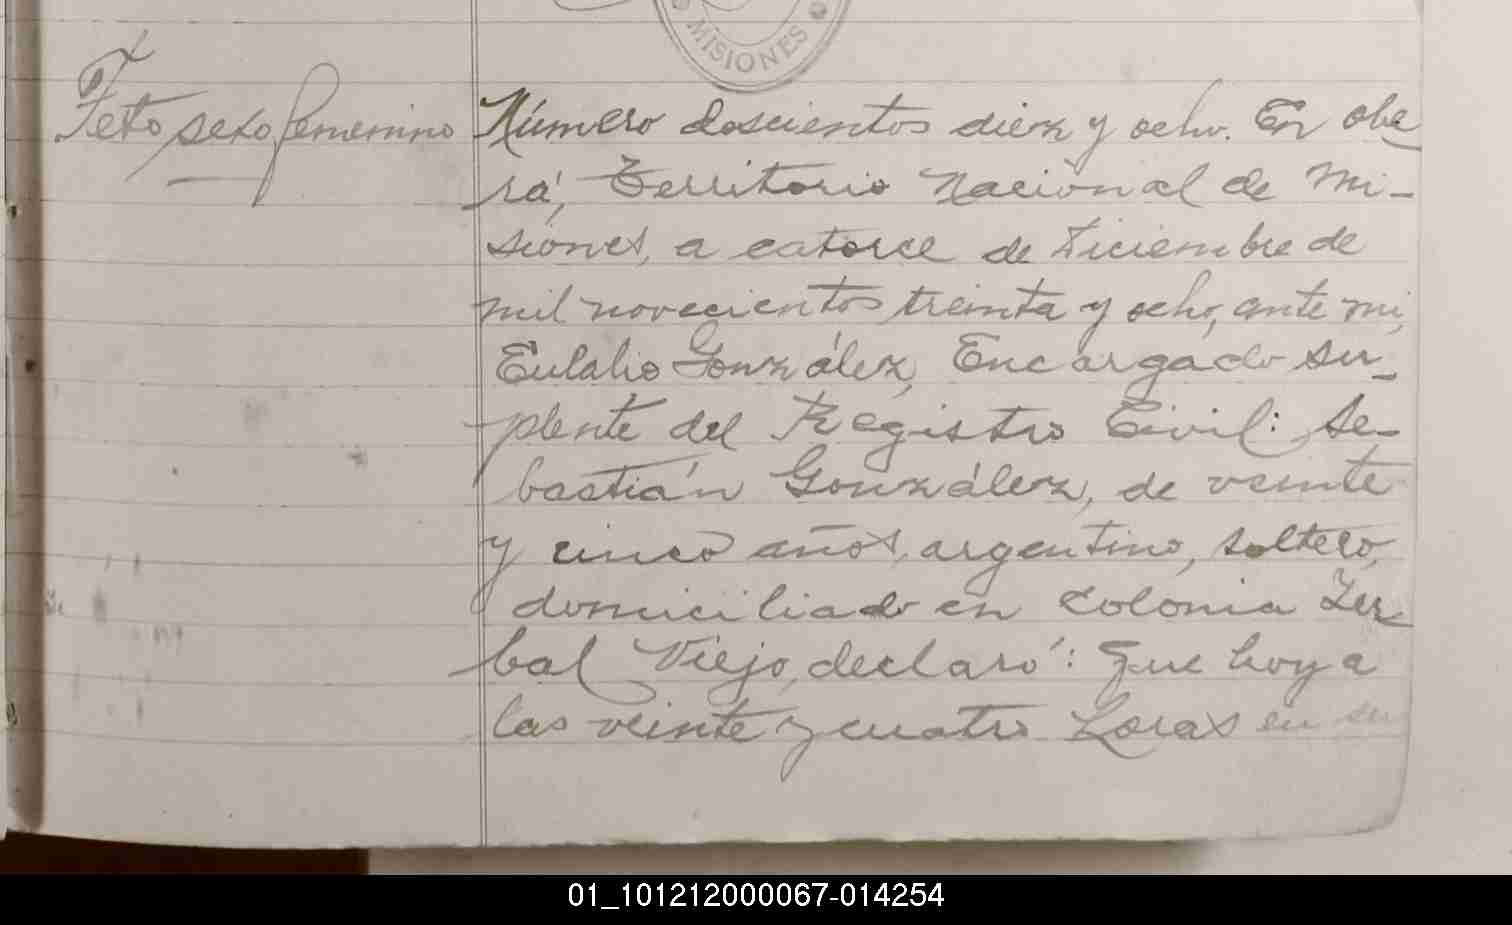 MISIONES
Feto sexo femenino
Número doscientos diez y ocho. En obe
rá, Territorio Nacional de Mi-
siones, a catorce de Diciembre de
mil novecientos treinta y ocho, ante mi,
Eulalio González, Encargado su-
plente del Registro Civil: Se-
bastián González, de veinte
y cinco años, argentino, soltero,
domiciliado en Colonia Yer
bal Viejo, declaró: Que hoy a
las veinte y cuatro horas en su
01_101212000067-014254